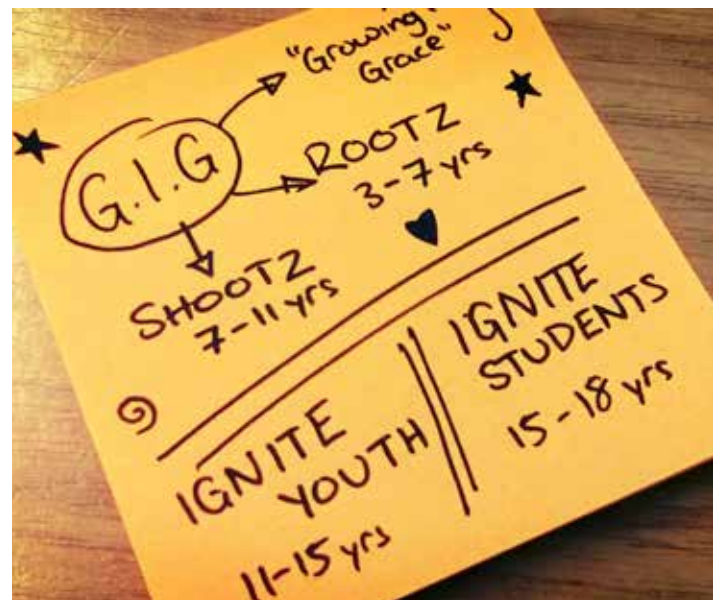 "Growing
Grace"
G.I.G
ROOTZ
3-7 yrs
SHOOTZ
7-11 yrs
IGNITE
YOUTH
11-15 yrs
IGNITE
STUDENTS
15-18 yrs